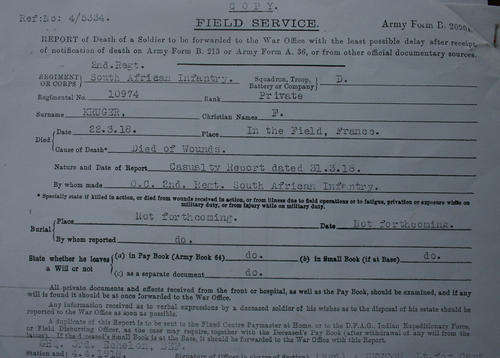 COPY.
Ref: No: 4/5334.
FIELD SERVICE.
Army Form B. 2090A.
REPORT of Death of a Soldier to be forwarded to the War Office with the least possible delay after receipt
of notification of death on Army Form B. 213 or Army Form A. 36, or from other official documentary sources.
2nd. Regt.
REGIMENT OR CORPS } South African Infantry. Squadron, Troop, Battery or Company } D.
Regimental No. 10974 Rank Private
Surname KRUGER. Christian Names F.
Died { Date 22.3.18. Place In the Field, France.
Cause of Death* Died of Wounds.
Nature and Date of Report Casualty Report dated 31.3.18.
By whom made O.C. 2nd. Regt. South African Infantry.
* Specially state if killed in action, or died from wounds received in action, or from illness due to field operations or to fatigue, privation or exposure while on
military duty, or from injury while on military duty.
Burial { Place Not forthcoming. Date Not forthcoming.
By whom reported do.
State whether he leaves a Will or not { (a) in Pay Book (Army Book 64) do. (b) in Small Book (if at Base) do.
(c) as a separate document do.
All private documents and effects received from the front or hospital, as well as the Pay Book, should be examined, and if any
will is found it should be at once forwarded to the War Office.
Any information received as to verbal expressions by a deceased soldier of his wishes as to the disposal of his estate should be
reported to the War Office as soon as possible.
A duplicate of this Report is to be sent to the Fixed Centre Paymaster at Home or to the D.F.A.G. Indian Expeditionary Force,
or Field Disbursing Officer, as the case may require, together with the Deceased's Pay Book (after withdrawal of any will from the
latter). If the deceased's Small Book is at the Base, it should be forwarded to the War Office with this Report.
Station and